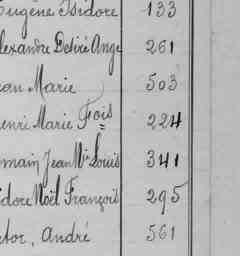 Eugène Isidore 133
lexandre Désiré Ange 261
ean Marie 503
enri Marie Fois 224
omain Jean Mie Louis 341
idore Noël François 295
ctor, André 561